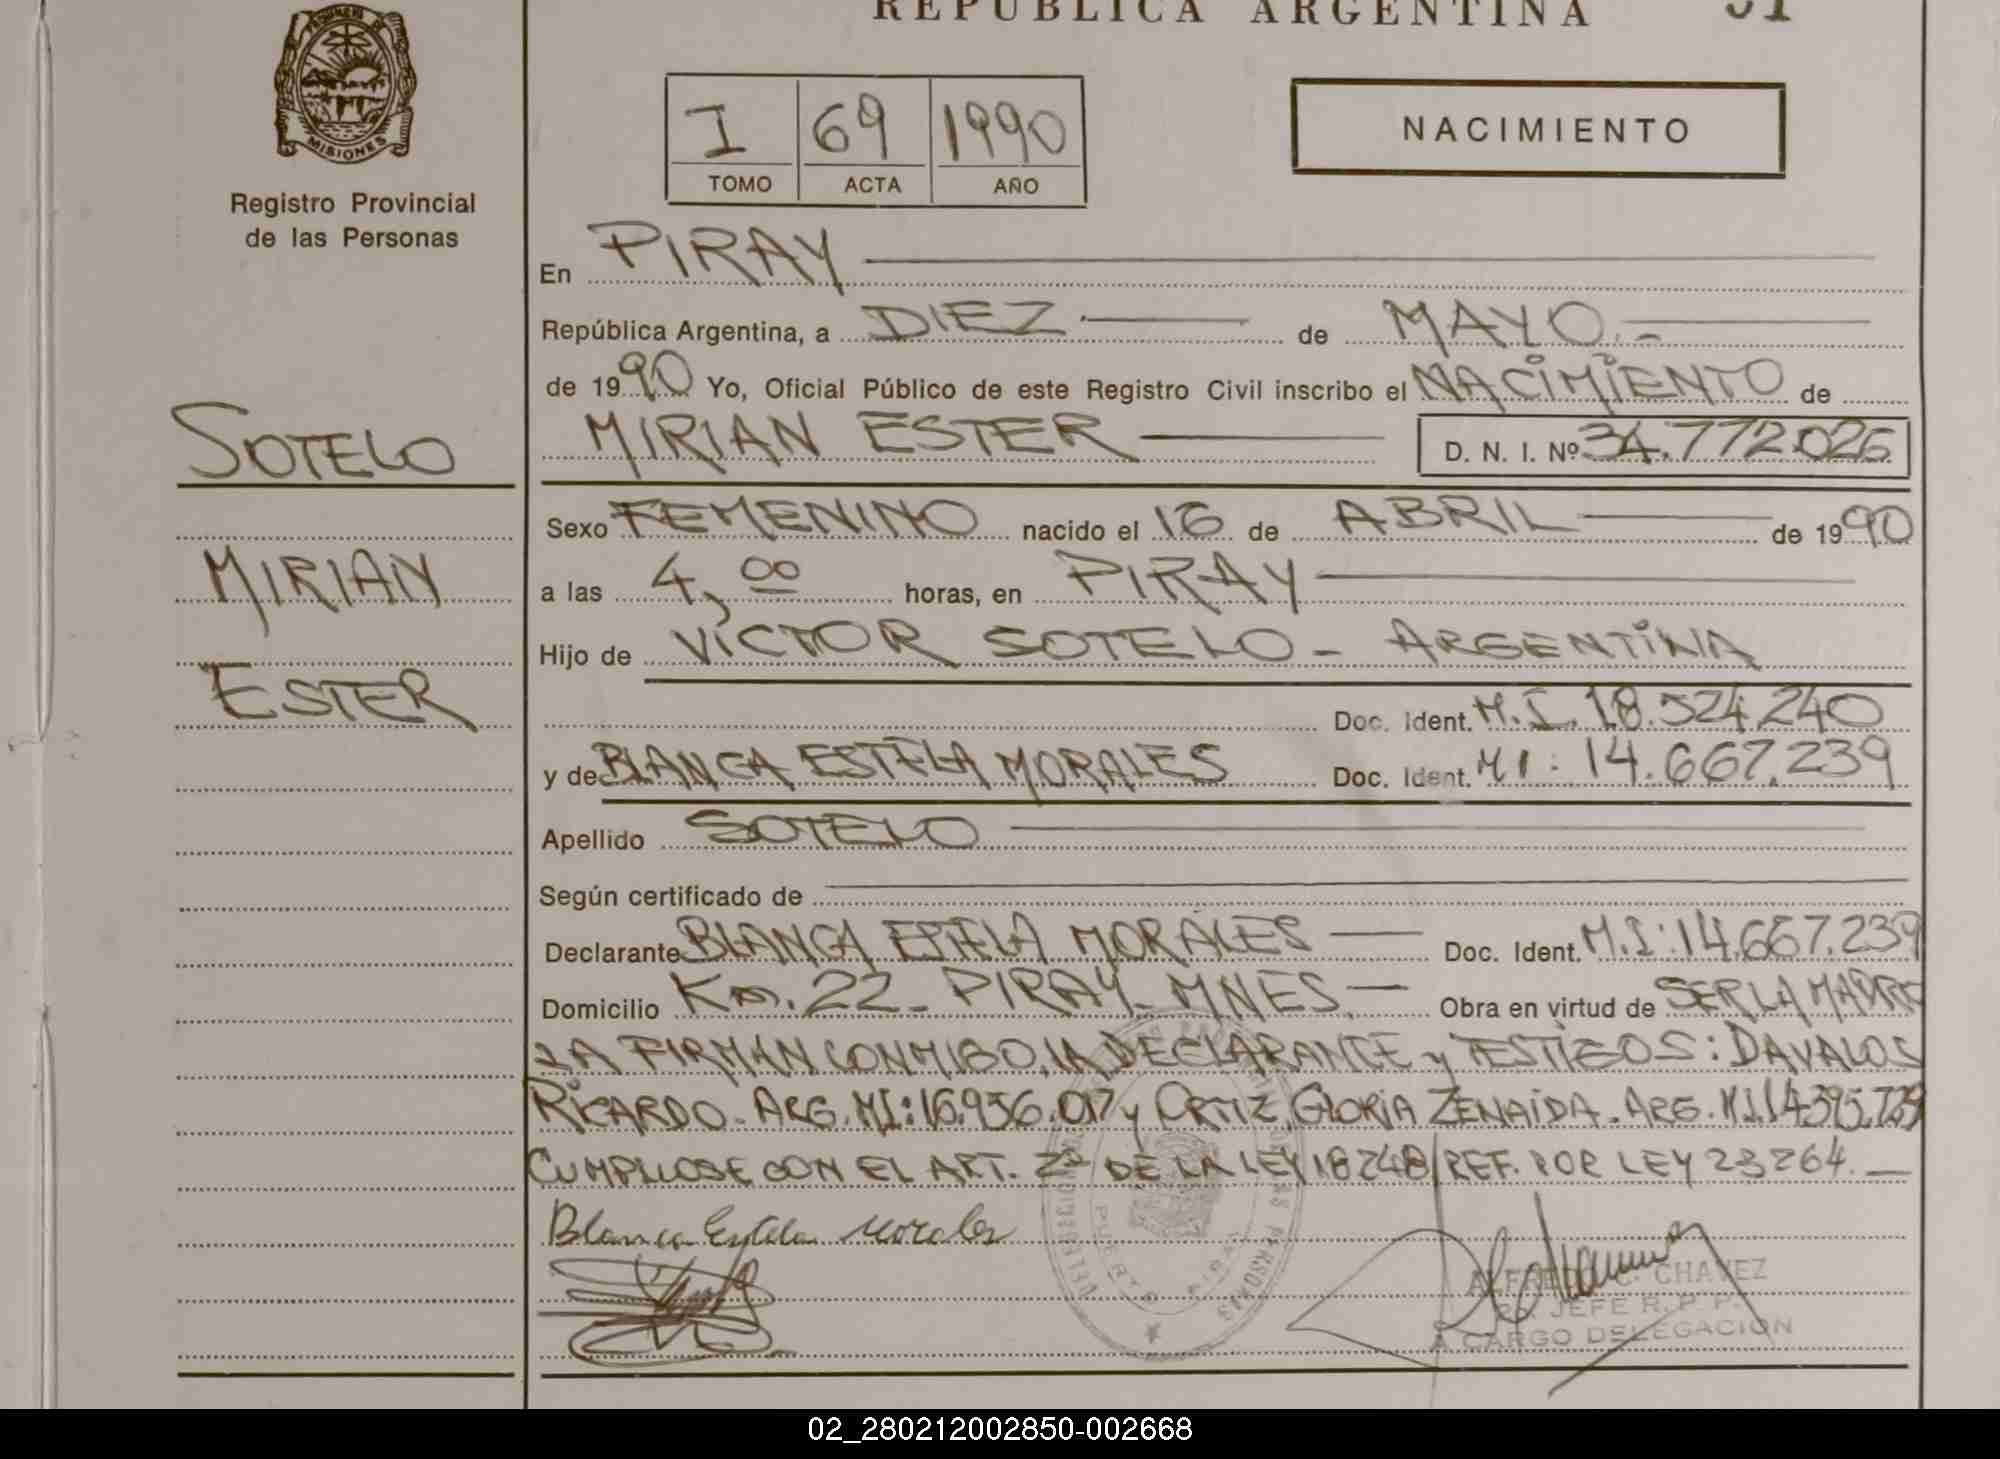 REPUBLICA ARGENTINA
MISIONES
Registro Provincial
de las Personas
I 69 1990
TOMO ACTA AÑO
NACIMIENTO
En PIRAY
República Argentina, a DIEZ de MAYO.-
de 1990 Yo, Oficial Público de este Registro Civil inscribo el NACIMIENTO de
SOTELO
MIRIAN ESTER D. N. I. Nº 34.772.026
Sexo FEMENINO nacido el 16 de ABRIL de 1990
MIRIAN
a las 4,00 horas, en PIRAY
Hijo de VICTOR SOTELO - ARGENTINA
ESTER
Doc. Ident. M.I. 18.524.240
y de BLANCA ESTELA MORALES Doc. Ident. MI: 14.667.239
Apellido SOTELO
Según certificado de
Declarante BLANCA ESTELA MORALES Doc. Ident. M.I: 14.667.239
Domicilio Km. 22 - PIRAY - MNES. Obra en virtud de SER LA MADRE
FIRMAN CONMIGO, LA DECLARANTE y TESTIGOS: DAVALOS
RICARDO. ARG. MI: 16.956.017 y ORTIZ, GLORIA ZENAIDA. ARG. M.I. 14.395.739
CUMPLIOSE CON EL ART. 2º DE LA LEY 18248/REF. POR LEY 23264.
Blanca Estela Morales
ALFREDO C. CHAVEZ
JEFE R. P. P.
A CARGO DELEGACION
02_280212002850-002668